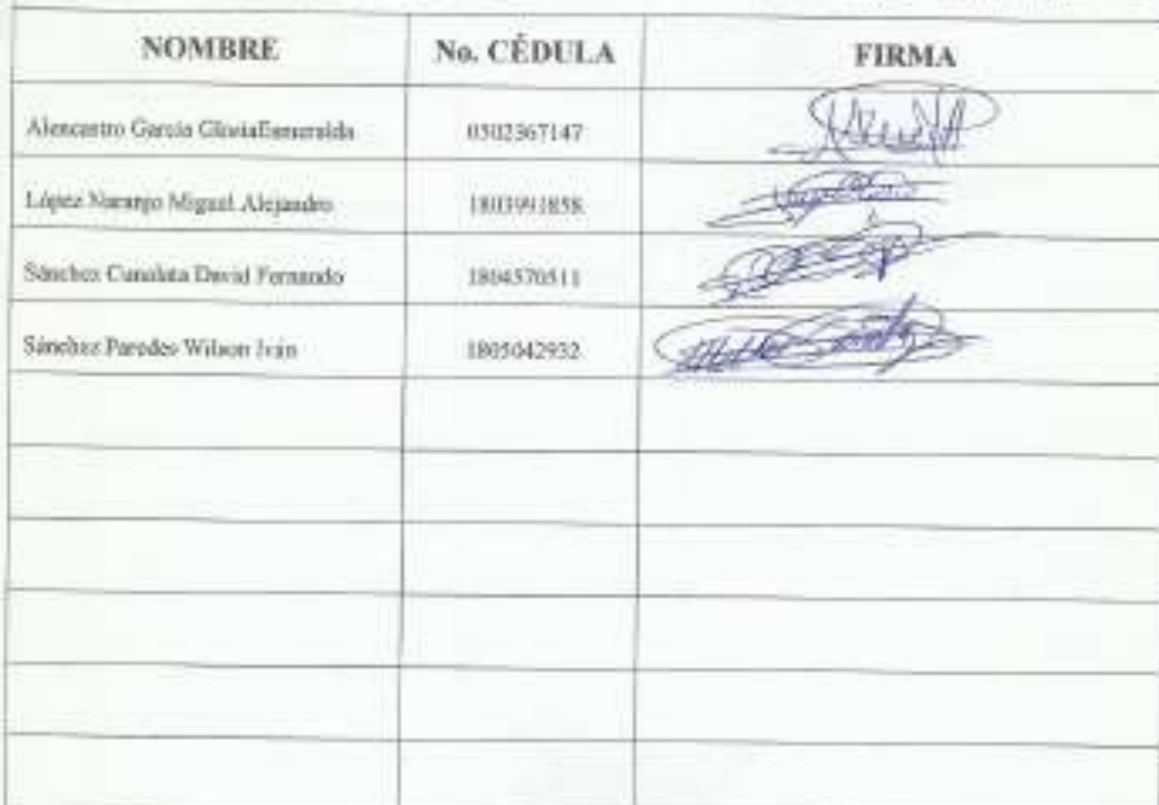 NOMBRE No. CÉDULA FIRMA
Alencastro García Esmeralda 0502367147
López Naranjo Miguel Alejandro 1803991858
Sánchez Cunalata David Fernando 1804570511
Sánchez Paredes Wilson Iván 1805042932